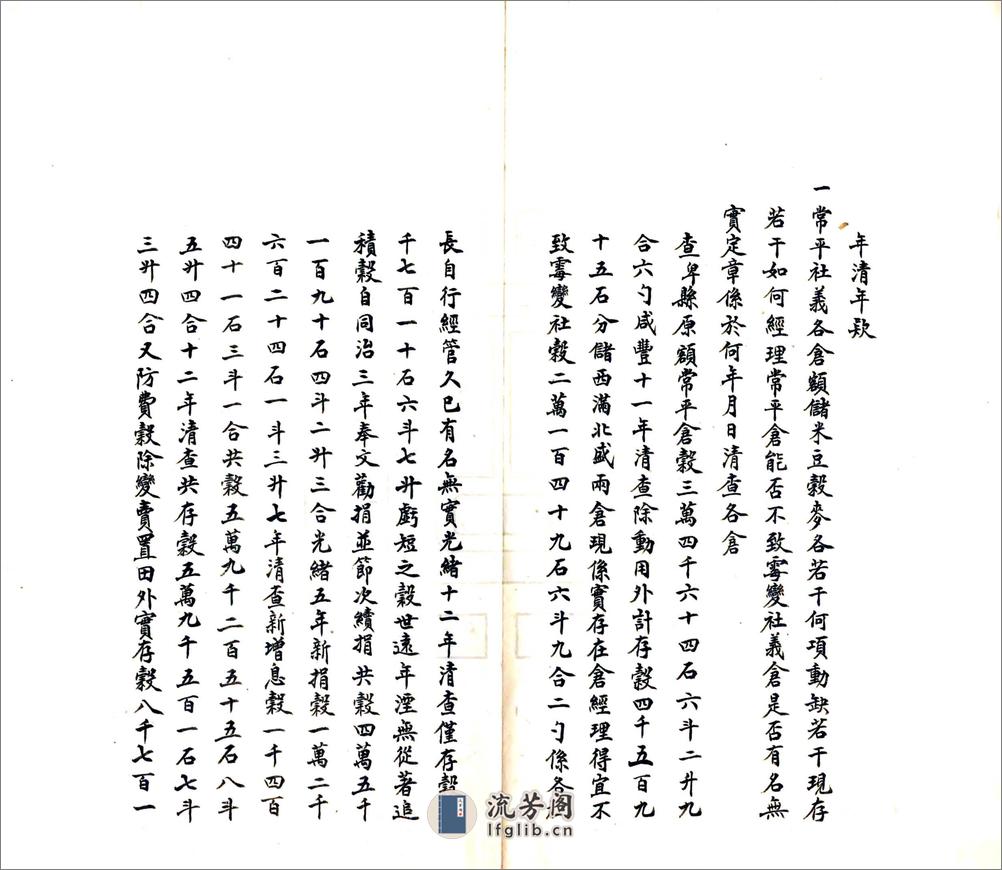 年清年款
一常平社義各倉額儲米豆穀麥各若干何項動缺若干現存
若干如何經理常平倉能否不致霉變社義倉是否有名無
實定章係於何年月日清查各倉
查卑縣原額常平倉穀三萬四千六十四石六斗二升九
合六勺咸豐十一年清查除動用外計存穀四千五百九
十五石分儲西滿北盛兩倉現係實存在倉經理得宜不
致霉變社穀二萬一百四十九石六斗九合二勺係各
長自行經管久已有名無實光緒十二年清查僅存穀
千七百一十石六斗七升虧短之穀世遠年湮無從著追
積穀自同治三年奉文勸捐並節次續捐共穀四萬五千
一百九十石四斗二升三合光緒五年新捐穀一萬二千
六百二十四石一斗三升七年清查新增息穀一千四百
四十一石三斗一合共穀五萬九千二百五十五石八斗
五升四合十二年清查共存穀五萬九千五百一石七斗
三升四合又防費穀除變賣置田外實存穀八千七百一
流芳阁
lfglib.cn